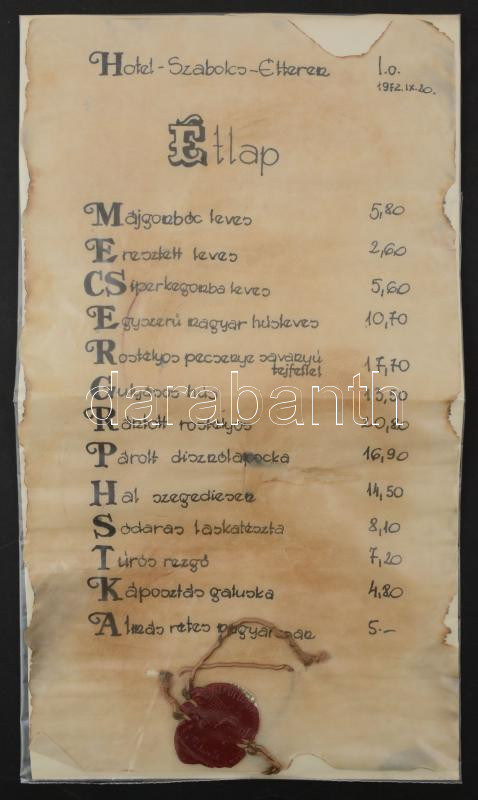 Hotel - Szabolcs - Étterem I.o.
1972.IX.20.
Étlap
Májgombóc leves 5,80
Eresztett leves 2,60
CSiperkegomba leves 5,60
Egyszerű magyar húsleves 10,70
Rostélyos pecsenye savanyú
tejfellel 17,70
Gulyásos hús
Rántott rostélyos
Párolt disznólapocka 16,90
Hal szegediesen 14,50
Sódaras laskatészta 8,10
Túrós rezgő 7,20
Káposztás galuska 4,80
Almás rétes magyarosan 5.-
darabanth